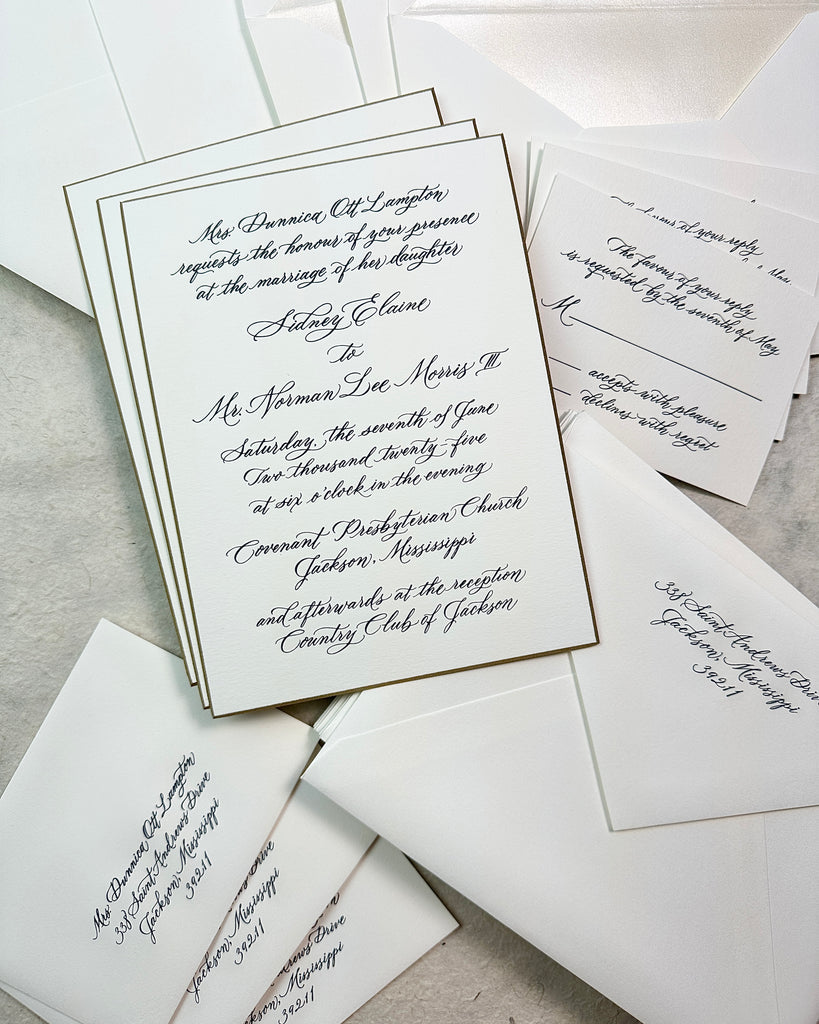 Mrs. Dunnica Ott Lampton
requests the honour of your presence
at the marriage of her daughter
Sidney Elaine
to
Mr. Norman Lee Morris III
Saturday, the seventh of June
Two thousand twenty-five
at six o'clock in the evening
Covenant Presbyterian Church
Jackson, Mississippi
and afterwards at the reception
Country Club of Jackson
favour of your reply
The favour of your reply
is requested by the seventh of May
M
accepts with pleasure
declines with regret
338 Saint Andrews Drive
Jackson, Mississippi
39211
Mrs. Dunnica Ott Lampton
338 Saint Andrews Drive
Jackson, Mississippi
39211
Drive
Jackson, Mississippi
39211
Andrews Drive
Mississippi
39211